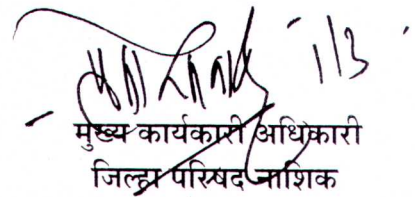 1/3
मुख्य कार्यकारी अधिकारी
जिल्हा परिषद नाशिक